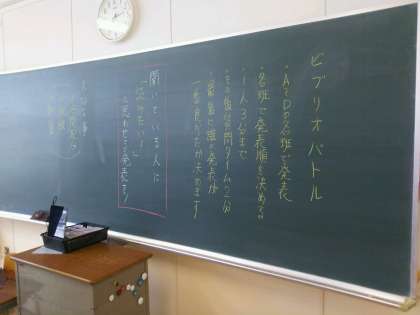 ビブリオバトル
・A～Dの各班で発表
・各班で発表順を決める
・1人3分まで
・その後質問タイム2分
・最後に誰の発表が
一番良かったか決めます
聞いている人に
「読みたい！」
と思わせる発表を！